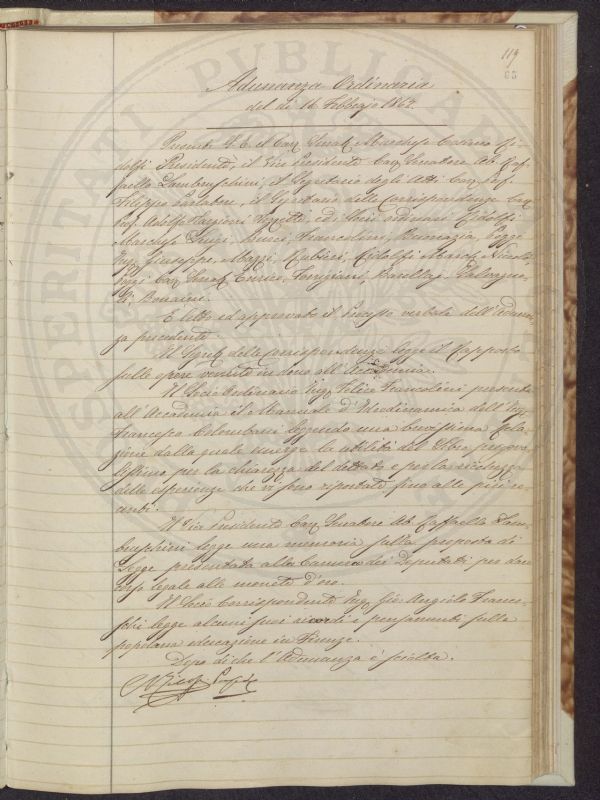 119
65
Adunanza Ordinaria
del dì 16 Febbrajo 1862.
Presenti S. E. il Cav. Senat. Marchese Cosimo Ri-
dolfi Presidente, il Vice Presidente Cav. Senatore Ab. Raf-
faello Lambruschini, il Segretario degli Atti Cav. Prof.
Filippo Parlatore, il Segretario delle Corrispondenze Cav.
Prof. Adolfo Targioni Tozzetti, ed i Socj ordinari Ridolfi
Marchese Luigi, Busci, Francolini, Poggi
Ing. Giuseppe, Mazzi, Rubieri, Ridolfi March. Niccolò
Poggi Cav. Senat. Enrico, Tonini, Salvagno-
li, Bonaini.
È letto ed approvato il Processo verbale dell'Adunan-
za precedente.
Il Segret. delle Corrispondenze legge il Rapporto
sulle opere venute in dono all'Accademia.
Il Socio Ordinario Ing. Felice Francolini presenta
all'Accademia il Manuale d'Idrodinamica dell'Ing.
Francesco Colombani leggendo una brevissima Rela-
zione dalla quale emerge la utilità del Libro
per la chiarezza del dettato e per la ricchezza
delle esperienze che vi sono riportate, fino alle più re-
centi.
Il Vice Presidente Cav. Senatore Ab. Raffaello Lam-
bruschini legge una memoria sulla proposta di
Legge presentata alla Camera dei Deputati per dar
corso legale alle monete d'oro.
Il Socio Corrispondente Ing. Gio. Angiolo France-
schi legge alcuni suoi ricordi e pensamenti sulla
popolana educazione in Firenze.
Dopo di che l'Adunanza è sciolta.